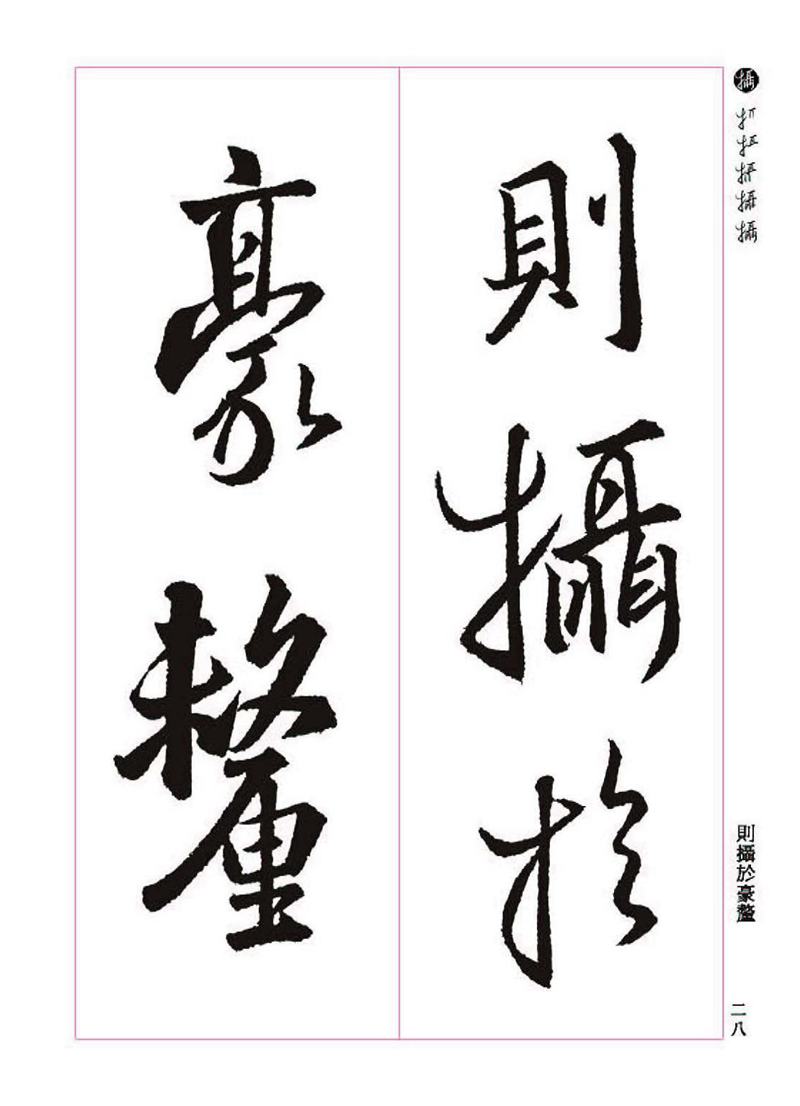 則攝於
豪釐
攝
則攝於豪釐
二八